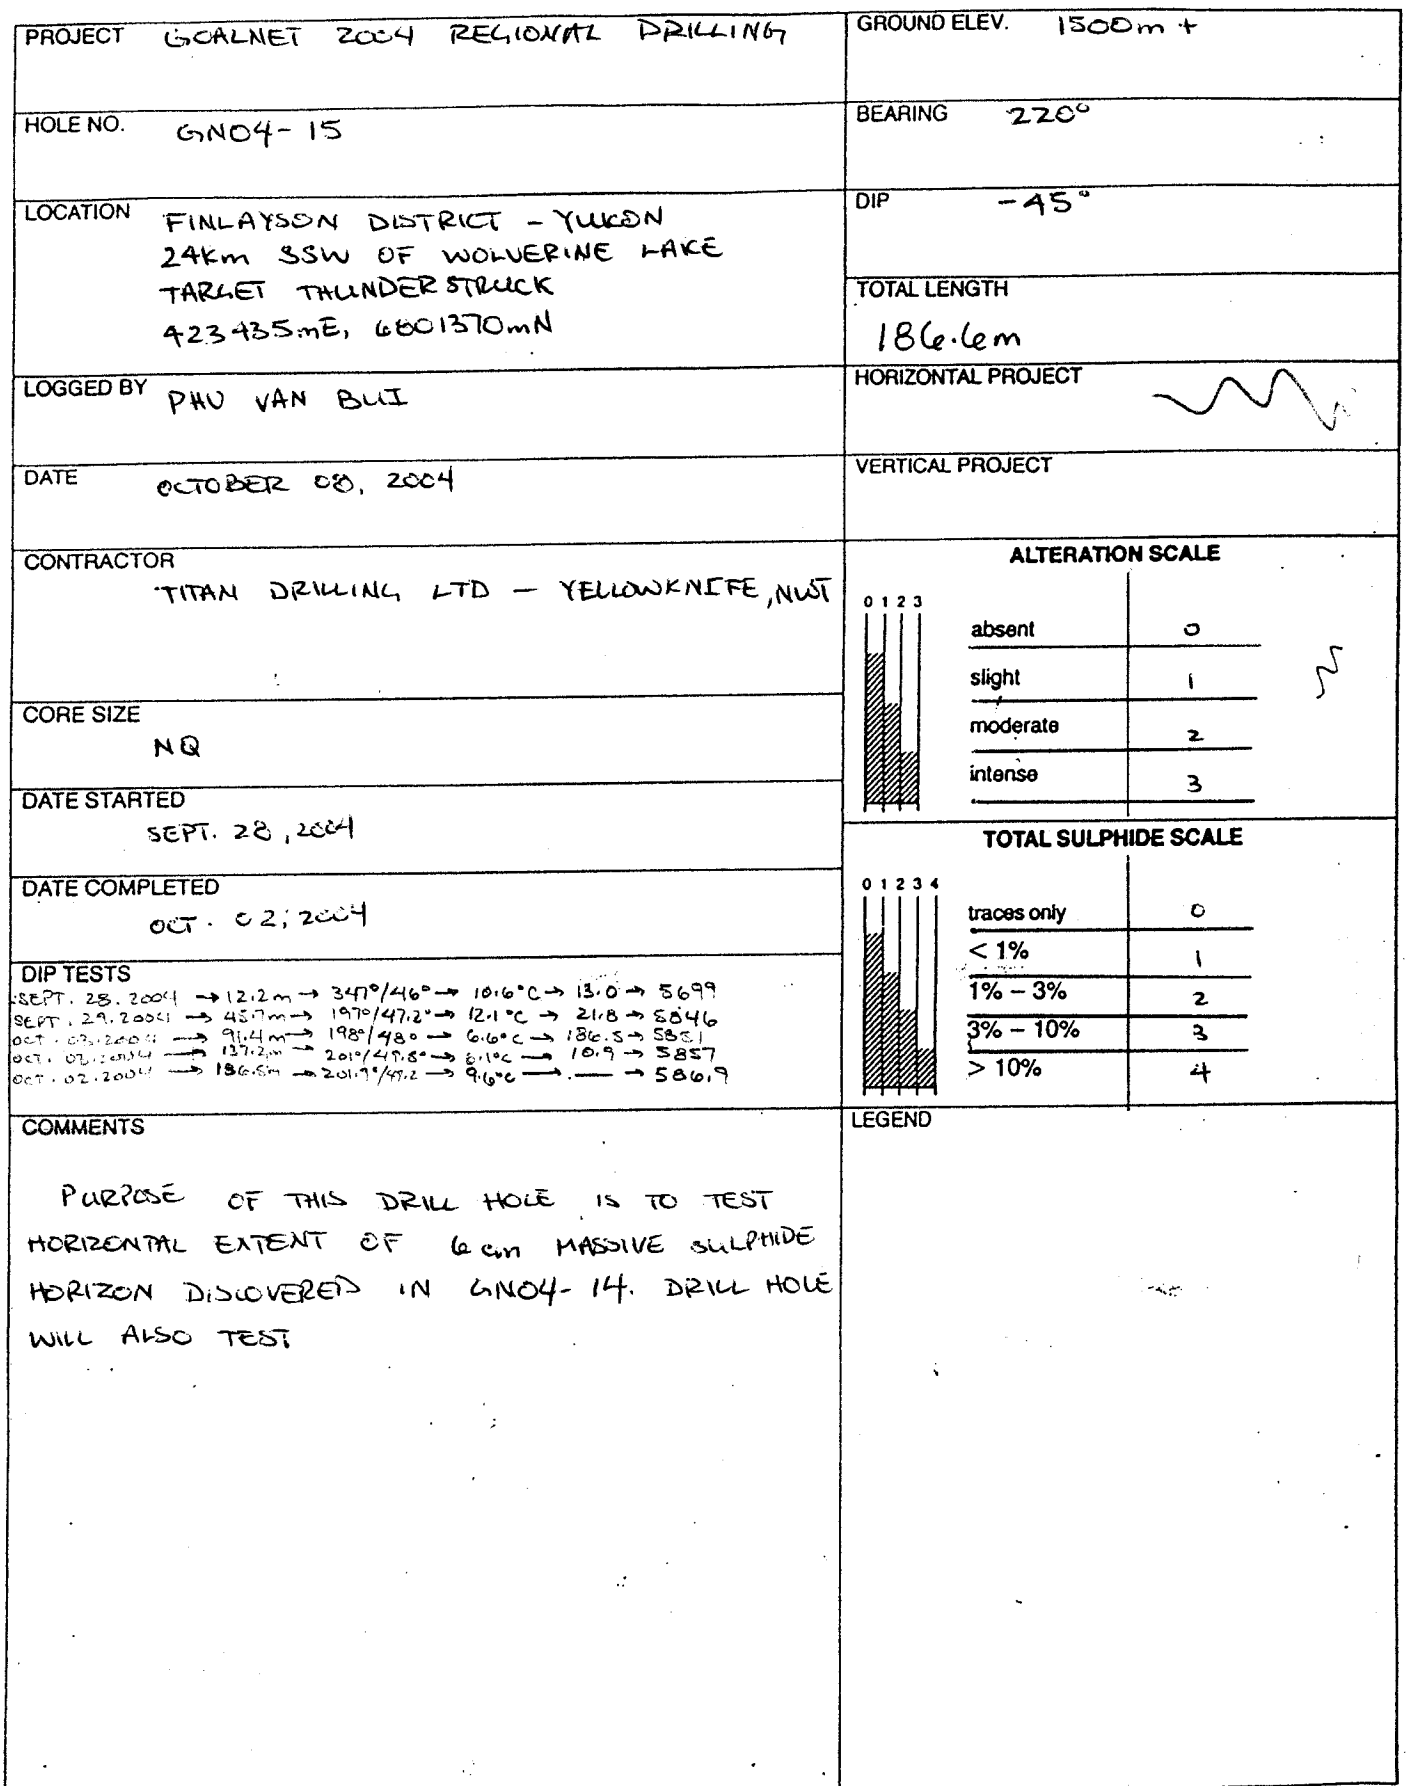 PROJECT GOALNET 2004 REGIONAL DRILLING
HOLE NO. GN04-15
LOCATION FINLAYSON DISTRICT - YUKON
24Km SSW OF WOLVERINE LAKE
TARGET THUNDERSTRUCK
423435mE, 6801370mN
LOGGED BY PHU VAN BUI
DATE OCTOBER 08, 2004
CONTRACTOR
TITAN DRILLING LTD - YELLOWKNIFE, NWT
CORE SIZE
NQ
DATE STARTED
SEPT. 28, 2004
DATE COMPLETED
OCT. 02, 2004
DIP TESTS
SEPT. 28. 2004 → 12.2m → 347°/46° → 10.6°C → 13.0 → 5699
SEPT. 29. 2004 → 45.7m → 197°/47.2° → 12.1°C → 21.8 → 5846
OCT. 2004 → 91.4m → 198°/48° → 6.6°C → 186.5 → 5851
OCT. 02. 2004 → 137.2m → 201°/47.8° → 6.1°C → 10.9 → 5857
OCT. 02. 2004 → 186.5m → 201.9°/47.2 → 9.6°C → — → 586.9
COMMENTS
PURPOSE OF THIS DRILL HOLE IS TO TEST
HORIZONTAL EXTENT OF 6cm MASSIVE SULPHIDE
HORIZON DISCOVERED IN GN04-14. DRILL HOLE
WILL ALSO TEST
GROUND ELEV. 1500m +
BEARING 220°
DIP -45°
TOTAL LENGTH
186.6m
HORIZONTAL PROJECT
VERTICAL PROJECT
ALTERATION SCALE
0 1 2 3
absent 0
slight 1
moderate 2
intense 3
TOTAL SULPHIDE SCALE
0 1 2 3 4
traces only 0
< 1% 1
1% – 3% 2
3% – 10% 3
> 10% 4
LEGEND